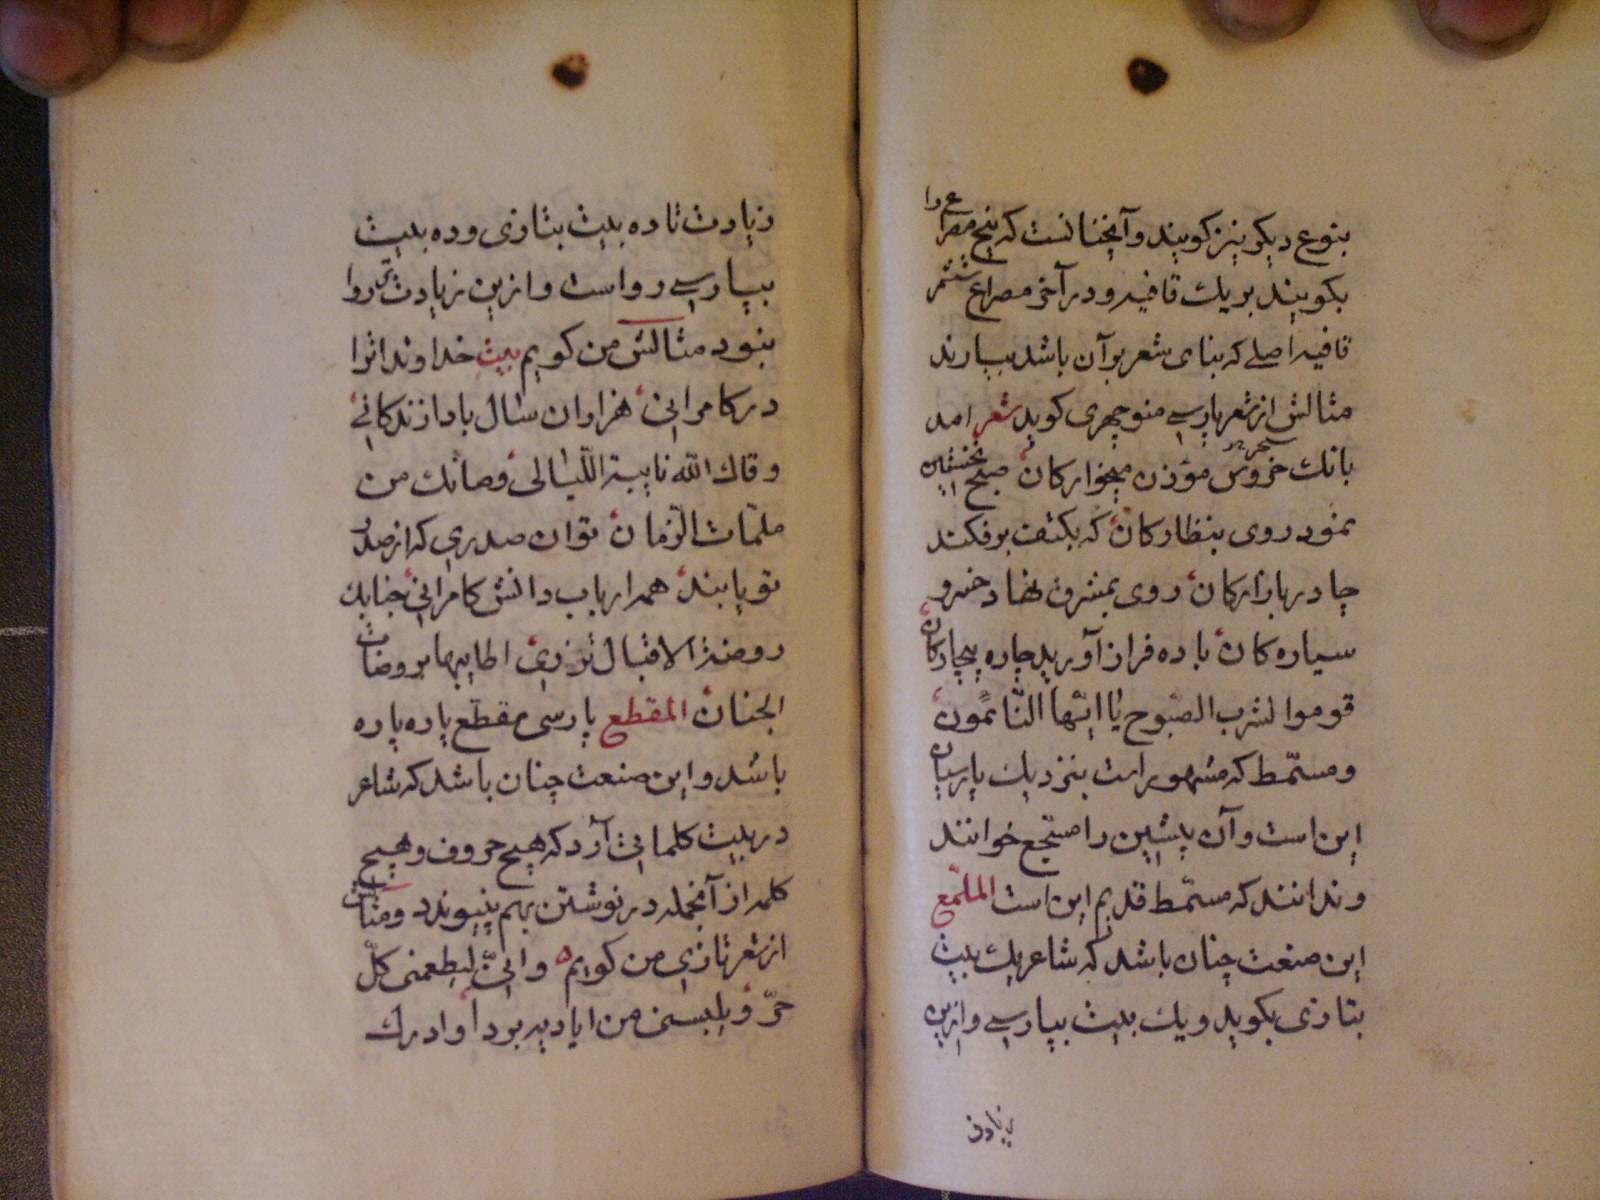 بنوع دیکر نیز کویند و آنچنانست که پنج مصراع را
بکویند بر یك قافیه و در آخر مصراع ششم
قافیه اصلے که بنای شعر بر آن باشد بیارند
مثالش از شعر پارسے منوچهری کوید شعر امد
بانك خروس مؤذن میخوارکان صبح نخستین
نمود روی بنظارکان که بکتف برفکند
چادر بازارکان روی بمشرق نهاد خسرو
سیارهکان باده فراز آورید چاره بیچارکان
قوموا لشرب الصّبوح یا ایّها النّائمون
و مسمّط که مشهور است بنزدیك پارسیان
این است و آن پیشین را مسجّع خوانند
و ندانند که مسمّط قدیم این است الملمّع
این صنعت چنان باشد که شاعر یك بیت
بتازی بکوید و یك بیت بپارسے و ازین
زیادت
زیادت تا ده بیت بتازی و ده بیت
بپارسے رواست و ازین زیادت روا
بنود مثالش من کویم بیت خداوندا ترا
در کامرانی هزاران سال بادا زندکانی
وقاك الله نایبة اللّیالی وصانك من
ملمّات الزّمان توان صدری که از صدر
تو یابند همه ارباب دانش کامرانی جنابك
روضة الاقبال تزری اطایبها بروضات
الجنان المقطع پارسی مقطّع پاره پاره
باشد و این صنعت چنان باشد که شاعر
در بیت کلماتی آرد که هیچ حروف و هیچ
کلمه از آنجمله در نوشتن بهم نپیوندد و مثالش
از شعر تازی من کویم و انّی لیطعمنی کلّ
حرّ و یلبسنی من ایادیه بردا و ادرك